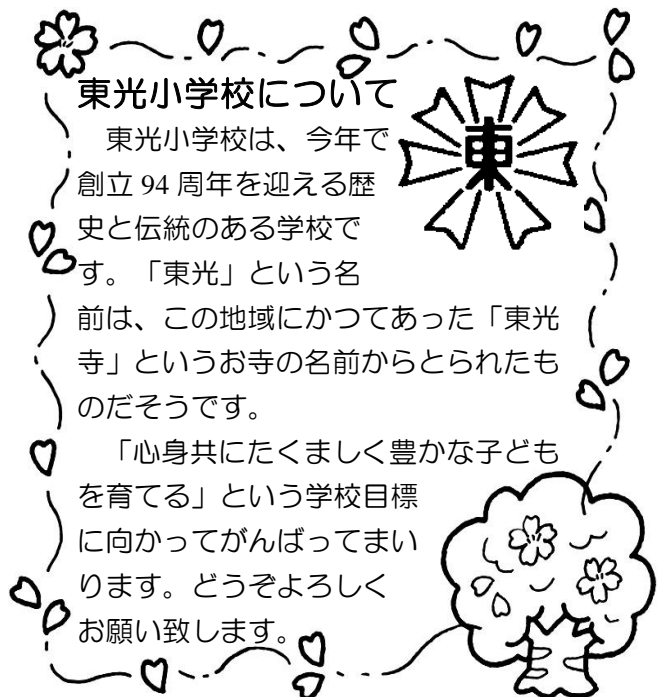 東光小学校について
東
東光小学校は、今年で
創立 94 周年を迎える歴
史と伝統のある学校で
す。「東光」という名
前は、この地域にかつてあった「東光
寺」というお寺の名前からとられたも
のだそうです。
「心身共にたくましく豊かな子ども
を育てる」という学校目標
に向かってがんばってまい
ります。どうぞよろしく
お願い致します。